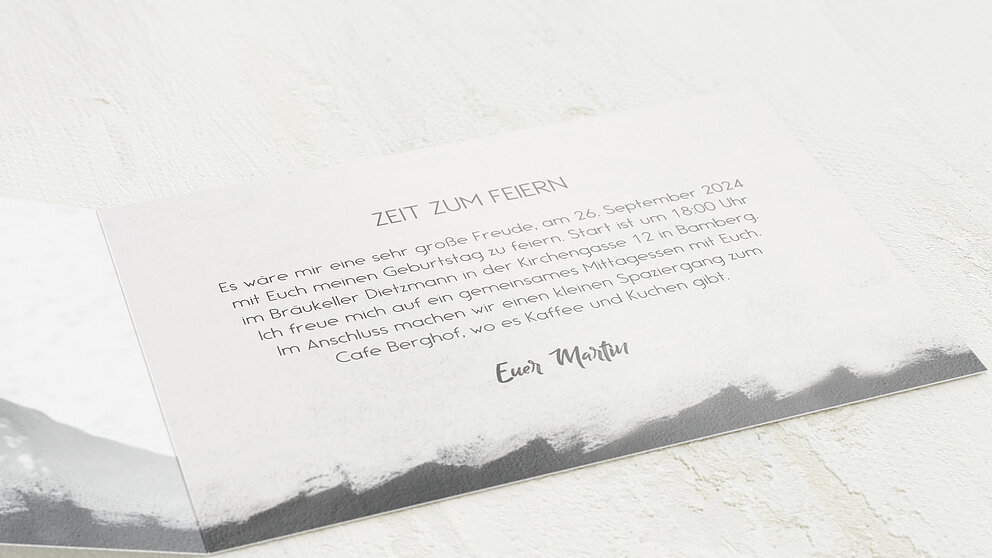 ZEIT ZUM FEIERN
Es wäre mir eine sehr große Freude, am 26. September 2024
mit Euch meinen Geburtstag zu feiern. Start ist um 18:00 Uhr
im Bräukeller Dietzmann in der Kirchengasse 12 in Bamberg.
Ich freue mich auf ein gemeinsames Mittagessen mit Euch.
Im Anschluss machen wir einen kleinen Spaziergang zum
Cafe Berghof, wo es Kaffee und Kuchen gibt.
Euer Martin